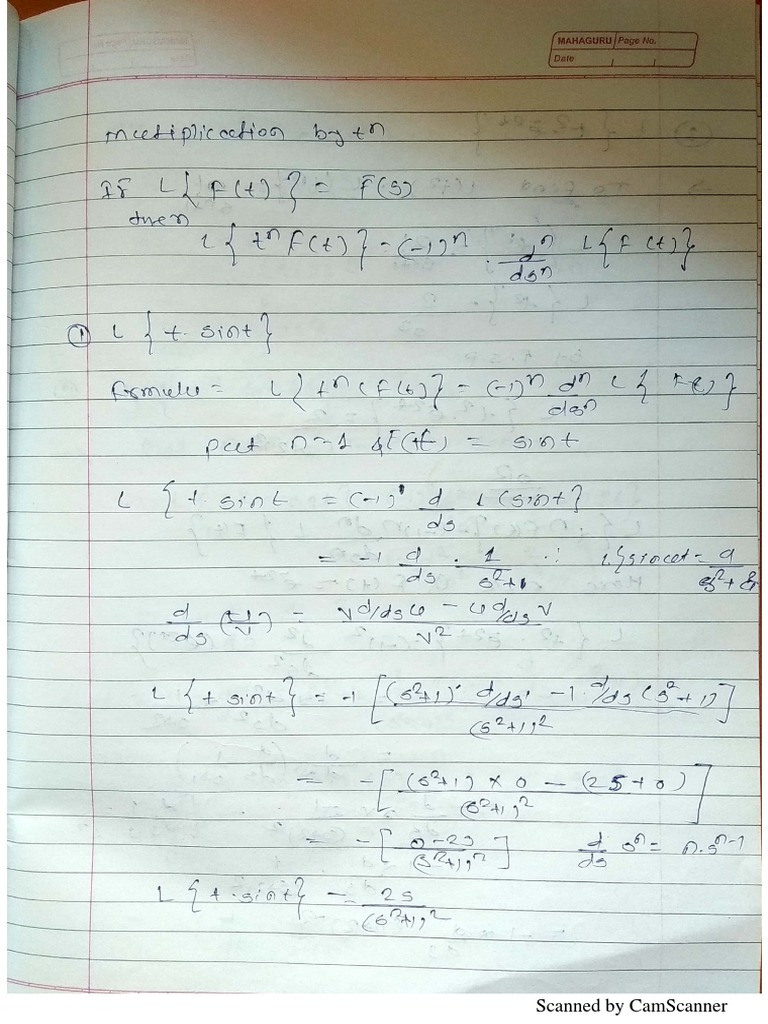 MAHAGURU Page No.
Date
Multiplication by tⁿ
If L{F(t)} = F̄(s)
then
L{tⁿ F(t)} = (-1)ⁿ · dⁿ/dsⁿ L{F(t)}
① L{t. sint}
formula = L{tⁿ(F(t)} = (-1)ⁿ dⁿ/dsⁿ L{F(t)}
put n=1 & F(t) = sint
L{t. sint = (-1)¹ d/ds L(sint}
= -1 d/ds · 1/s²+1 ∵ L{sinat = a/s²+a²
d/ds (u/v) = v d/ds u - u d/ds v / v²
L{t sint} = -1 [(s²+1)· d/ds¹ - 1· d/ds (s²+1) / (s²+1)²]
= -[(s²+1) × 0 - (2s+0) / (s²+1)²]
= -[0-2s / (s²+1)²] d/ds sⁿ = n.sⁿ⁻¹
L{t.sint} = 2s/(s²+1)²
Scanned by CamScanner